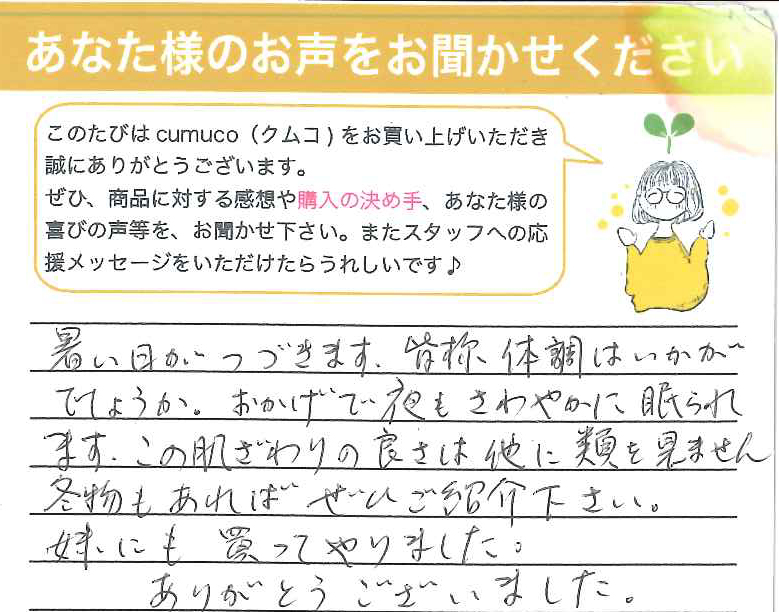 あなた様のお声をお聞かせください
このたびは cumuco（クムコ）をお買い上げいただき
誠にありがとうございます。
ぜひ、商品に対する感想や購入の決め手、あなた様の
喜びの声等を、お聞かせ下さい。またスタッフへの応
援メッセージをいただけたらうれしいです♪
暑い日がつづきます、皆様、体調はいかがで
でしょうか。おかげで夜もさわやかに眠られ
ます、この肌ざわりの良さは他に類を見ません
冬物もあればぜひご紹介下さい。
妹にも買ってやりました。
ありがとうございました。